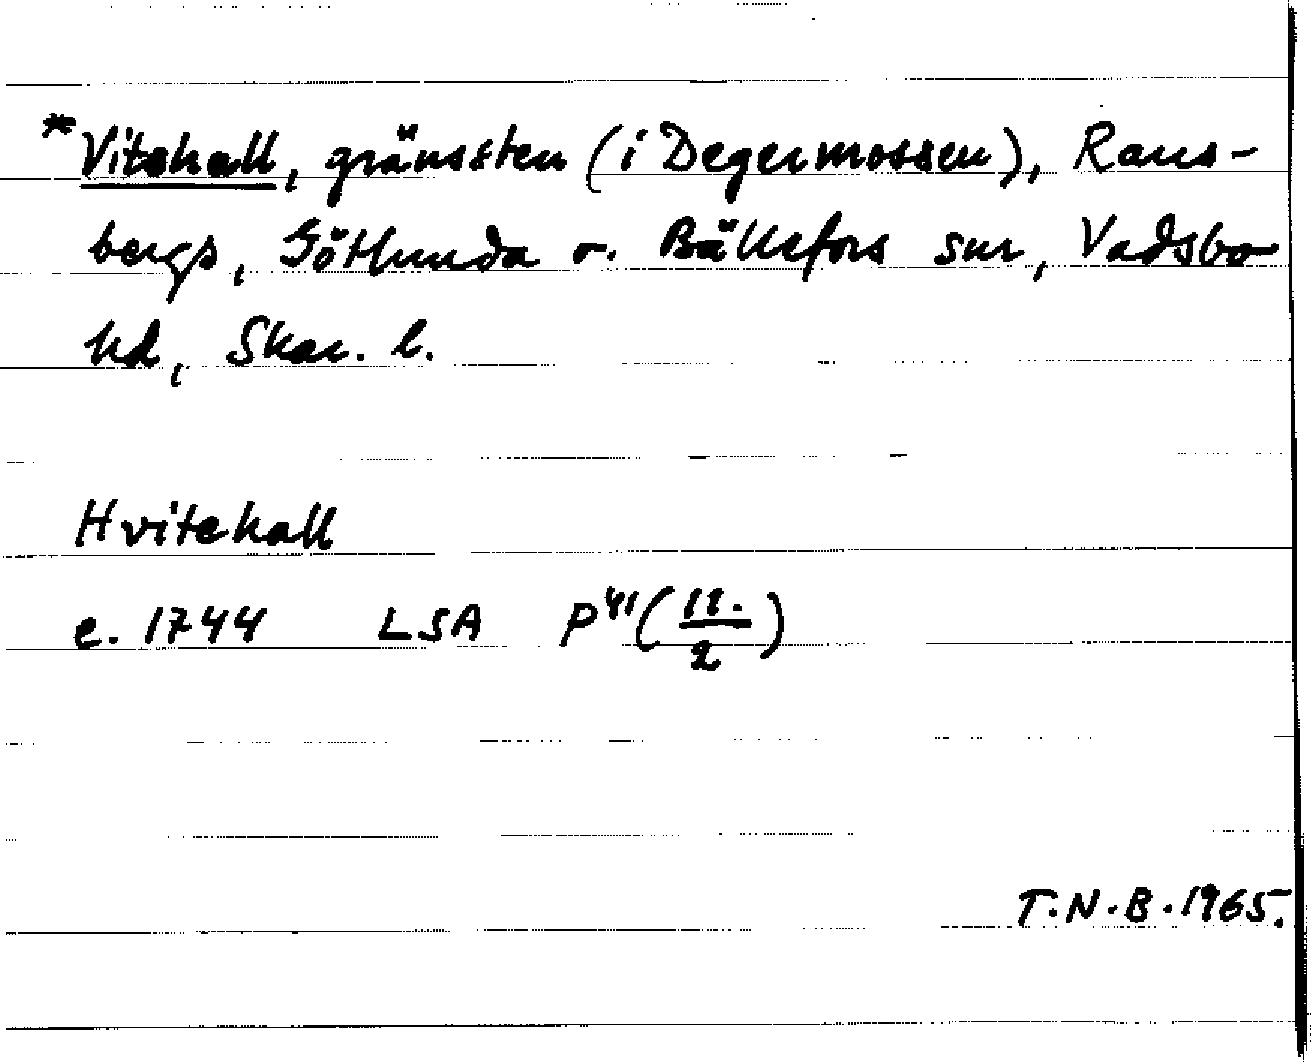 *Vitehall, gränssten (i Degermossen), Rans-
bergs, Götlunda o. Bällefors snr, Vadsbo
hd, Skar. l.
Hvitehall
c. 1744 LSA P41(11./2)
T.N.B. 1965.